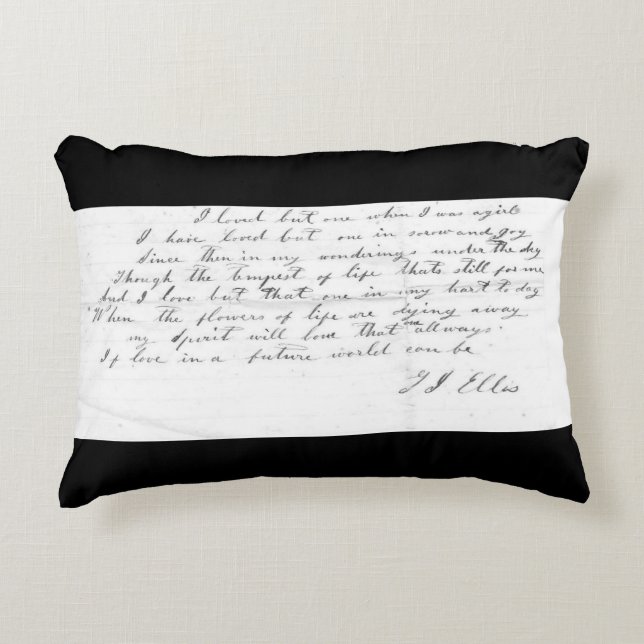 I loved but one when I was a girl
I have Loved but one in sorow and goy
Since then in my wonderings under the sky
Though the tempest of life thats still for me
And I love but that one in my hart to day
When the flowers of life are dying away
my Spirit will bow that one allways
If love in a future world can be
G I Ellis